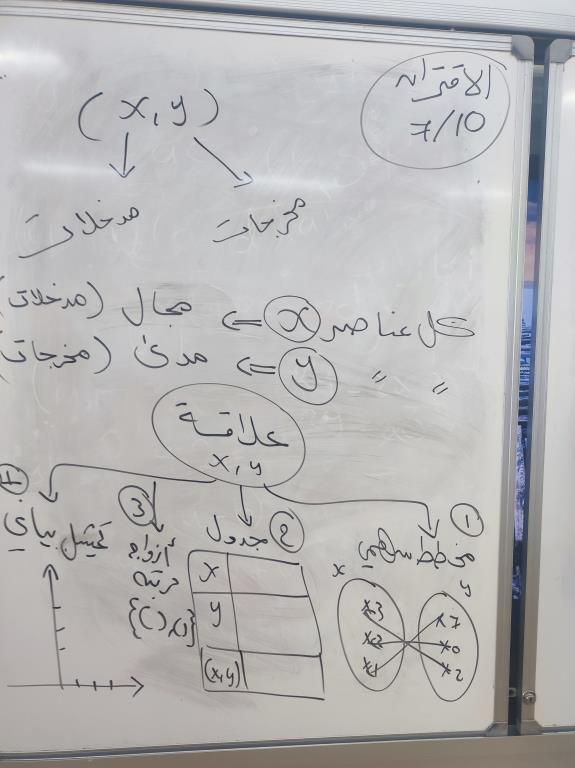 الاقتران
7/10
(x, y)
مدخلات
مخرجات
كل عناصر x ⇐ مجال (مدخلات)
〃 〃 y ⇐ مدى (مخرجات)
علاقة
x, y
1
مخطط سهمي
x
y
3
2
1
7
0
2
2
جدول
x
y
(x,y)
3
أزواج
مرتبة
{( ),( )}
تمثيل بياني